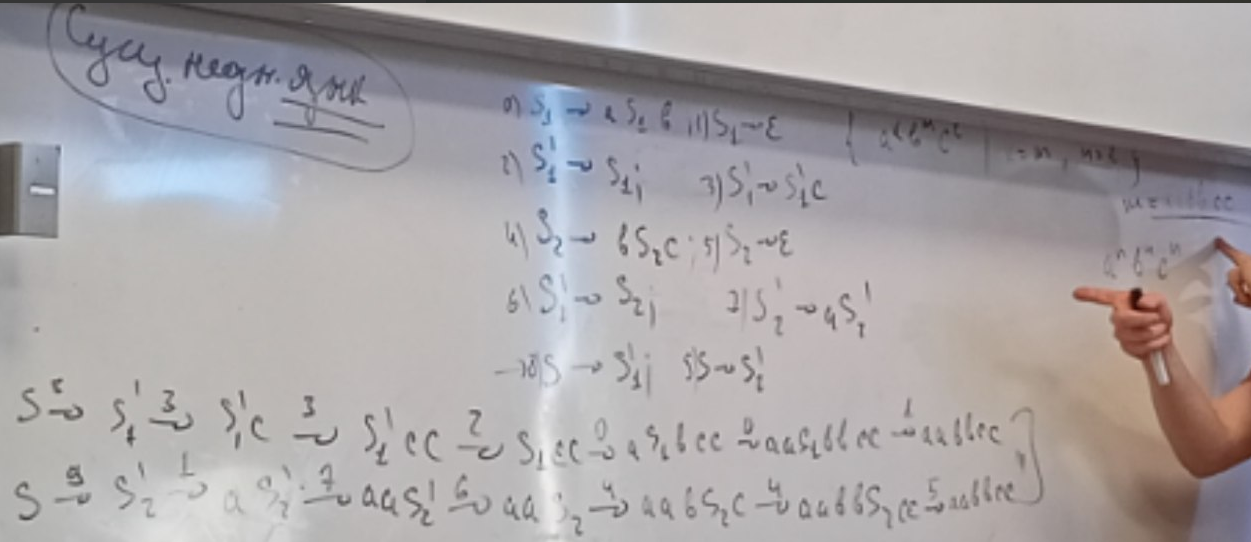 Сущ. неодн. язык
0) S₁ → a S₁ b ; 1) S₁ → ε
2) S₁' → S₁; 3) S₁' → S₁'c
4) S₂ → bS₂c ; 5) S₂ → ε
6) S₁' → S₂; 7) S₂' → aS₂'
→ 8) S → S₁'; 9) S → S₂'
aⁿbⁿcⁿ
S →⁸ S₁' →³ S₁'c →³ S₁'cc →² S₁cc →⁰ aS₁bcc →⁰ aaS₁bbcc →¹ aabbcc
S →⁹ S₂' → aS₂' →⁷ aaS₂' →⁶ aaS₂ →⁴ aabS₂c →⁴ aabbS₂cc →⁵ aabbcc